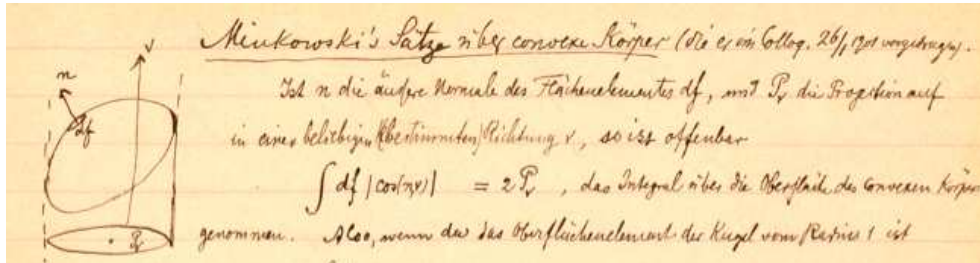 Minkowski's Sätze über convexe Körper (die er im Colloq. 26/1 1901 vorgetragen).
Ist n die äußere Normale des Flächenelementes df, und P_ν die Projection auf
in einer beliebigen (bestimmten) Richtung ν, so ist offenbar
∫ df |cos(n,ν)| = 2 P_ν, das Integral über die Oberfläche des convexen Körpers
genommen. Also, wenn dω das Oberflächenelement der Kugel vom Radius 1 ist
ν
n
df
P_ν